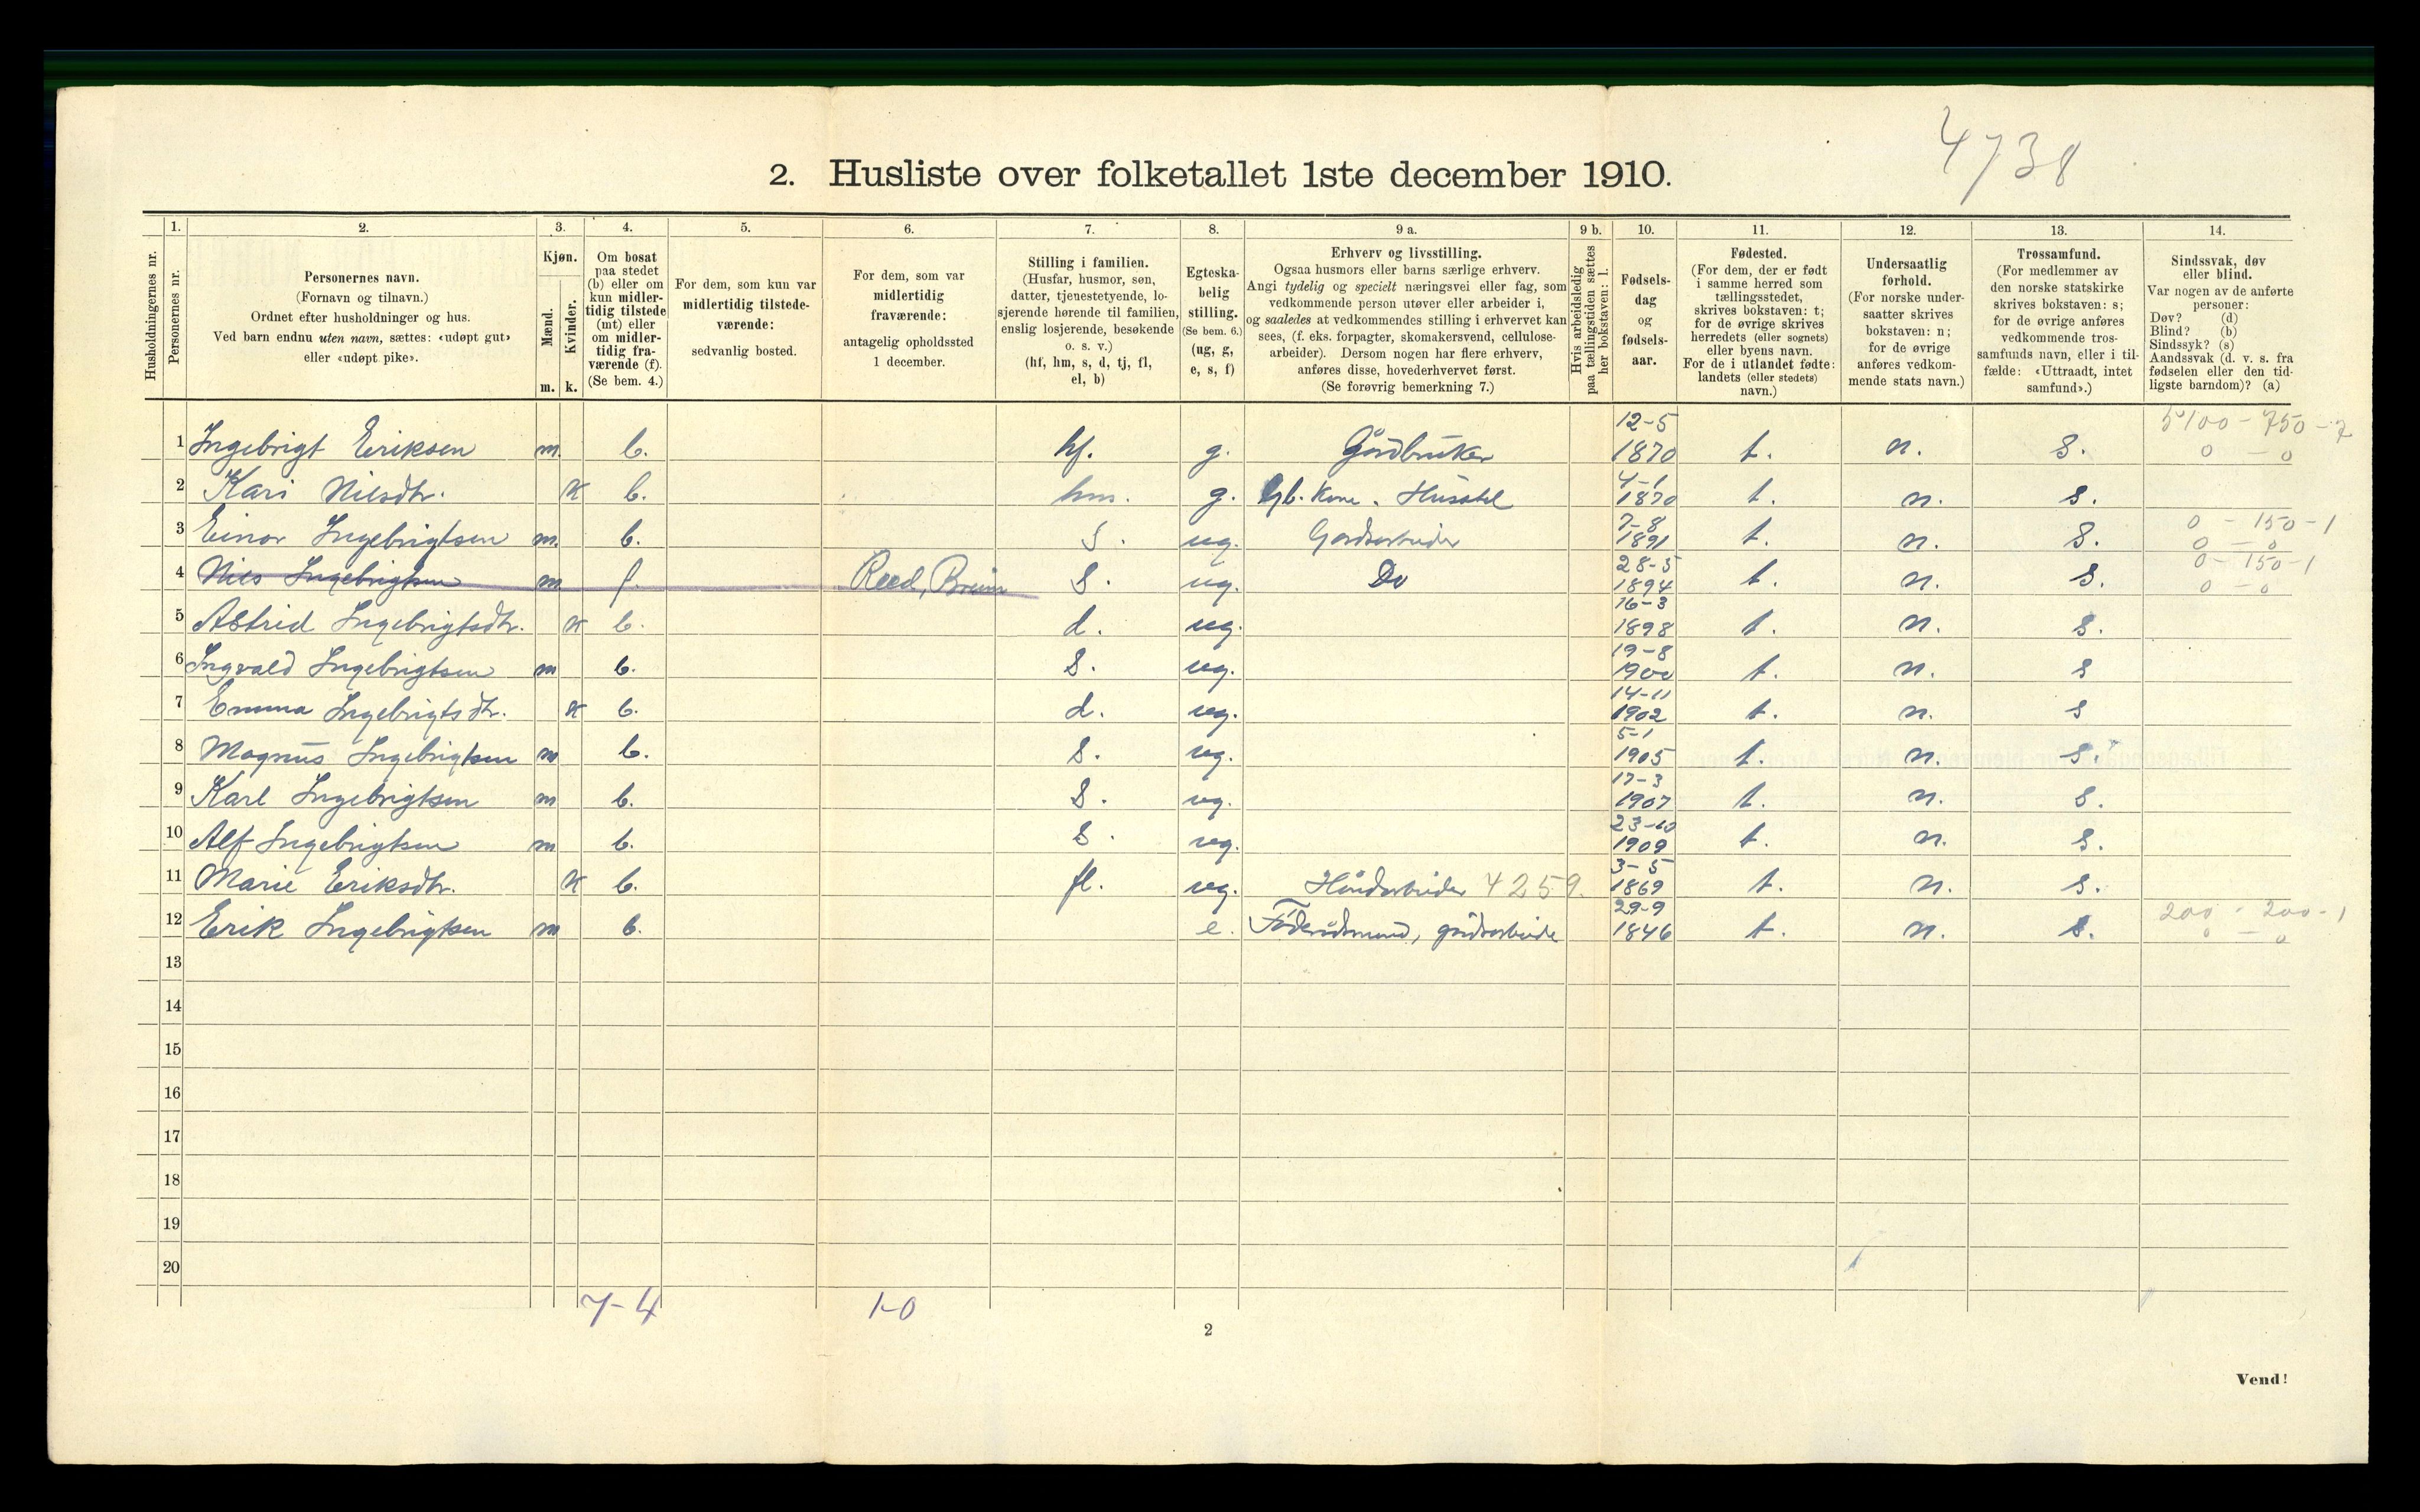 4738
2. Husliste over folketallet 1ste december 1910.
Husholdningernes nr.
1.
Personernes nr.
2.
Personernes navn.
(Fornavn og tilnavn.)
Ordnet efter husholdninger og hus.
Ved barn endnu uten navn, sættes: «udøpt gut»
eller «udøpt pike».
3.
Kjøn.
Mænd.
m.
Kvinder.
k.
4.
Om bosat
paa stedet
(b) eller om
kun midler-
tidig tilstede
(mt) eller
om midler-
tidig fra-
værende (f).
(Se bem. 4.)
5.
For dem, som kun var
midlertidig tilstede-
værende:
sedvanlig bosted.
6.
For dem, som var
midlertidig
fraværende:
antagelig opholdssted
1 december.
7.
Stilling i familien.
(Husfar, husmor, søn,
datter, tjenestetyende, lo-
sjerende hørende til familien,
enslig losjerende, besøkende
o. s. v.)
(hf, hm, s, d, tj, fl,
el, b)
8.
Egteska-
belig
stilling.
(Se bem. 6.)
(ug, g,
e, s, f)
9 a.
Erhverv og livsstilling.
Ogsaa husmors eller barns særlige erhverv.
Angi tydelig og specielt næringsvei eller fag, som
vedkommende person utøver eller arbeider i,
og saaledes at vedkommendes stilling i erhvervet kan
sees, (f. eks. forpagter, skomakersvend, cellulose-
arbeider). Dersom nogen har flere erhverv,
anføres disse, hovederhvervet først.
(Se forøvrig bemerkning 7.)
9 b.
Hvis arbeidsledig
paa tællingstiden sættes
her bokstaven: l.
10.
Fødsels-
dag
og
fødsels-
aar.
11.
Fødested.
(For dem, der er født
i samme herred som
tællingsstedet,
skrives bokstaven: t;
for de øvrige skrives
herredets (eller sognets)
eller byens navn.
For de i utlandet fødte:
landets (eller stedets)
navn.)
12.
Undersaatlig
forhold.
(For norske under-
saatter skrives
bokstaven: n;
for de øvrige
anføres vedkom-
mende stats navn.)
13.
Trossamfund.
(For medlemmer av
den norske statskirke
skrives bokstaven: s;
for de øvrige anføres
vedkommende tros-
samfunds navn, eller i til-
fælde: «Uttraadt, intet
samfund».)
14.
Sindssvak, døv
eller blind.
Var nogen av de anførte
personer:
Døv? (d)
Blind? (b)
Sindssyk? (s)
Aandssvak (d. v. s. fra
fødselen eller den tid-
ligste barndom)? (a)
1 Ingebrigt Eriksen m. b. hf. g. Gårdbruker 12-5 1870 t. n. s. 5100 - 750 - 7 0 - 0
2 Kari Nilsdtr. k b. hm. g. Gb. kone. Husstel 4-1 1870 t. n. s.
3 Einar Ingebrigtsen m. b. s. ug. Gardsarbeider 7-8 1891 t. n. s. 0 - 150 - 1 0 - 0
4 Nils Ingebrigtsen m f. Reed, Breim s. ug. Do 28-5 1894 t. n. s. 0 - 150 - 1 0 - 0
5 Astrid Ingebrigtsdtr. k b. d. ug. 16-3 1898 t. n. s.
6 Ingvald Ingebrigtsen m b. s. ug. 19-8 1900 t. n. s
7 Emma Ingebrigtsdtr. k b. d. ug. 14-11 1902 t. n. s
8 Magnus Ingebrigtsen m b. s. ug. 5-1 1905 t. n. s.
9 Karl Ingebrigtsen m b. s. ug. 17-3 1907 t. n. s.
10 Alf Ingebrigtsen m b. s. ug. 23-10 1909 t. n. s.
11 Marie Eriksdtr. k b. fl. ug. Håndarbeider 4259. 3-5 1869 t. n. s.
12 Erik Ingebrigtsen m b. e. Føderådsmand, gårdsarbeide 29-9 1846 t. n. s. 200 - 200 - 1 0 - 0
13
14
15
16
17
18
19
20
7-4 1-0
2
Vend!